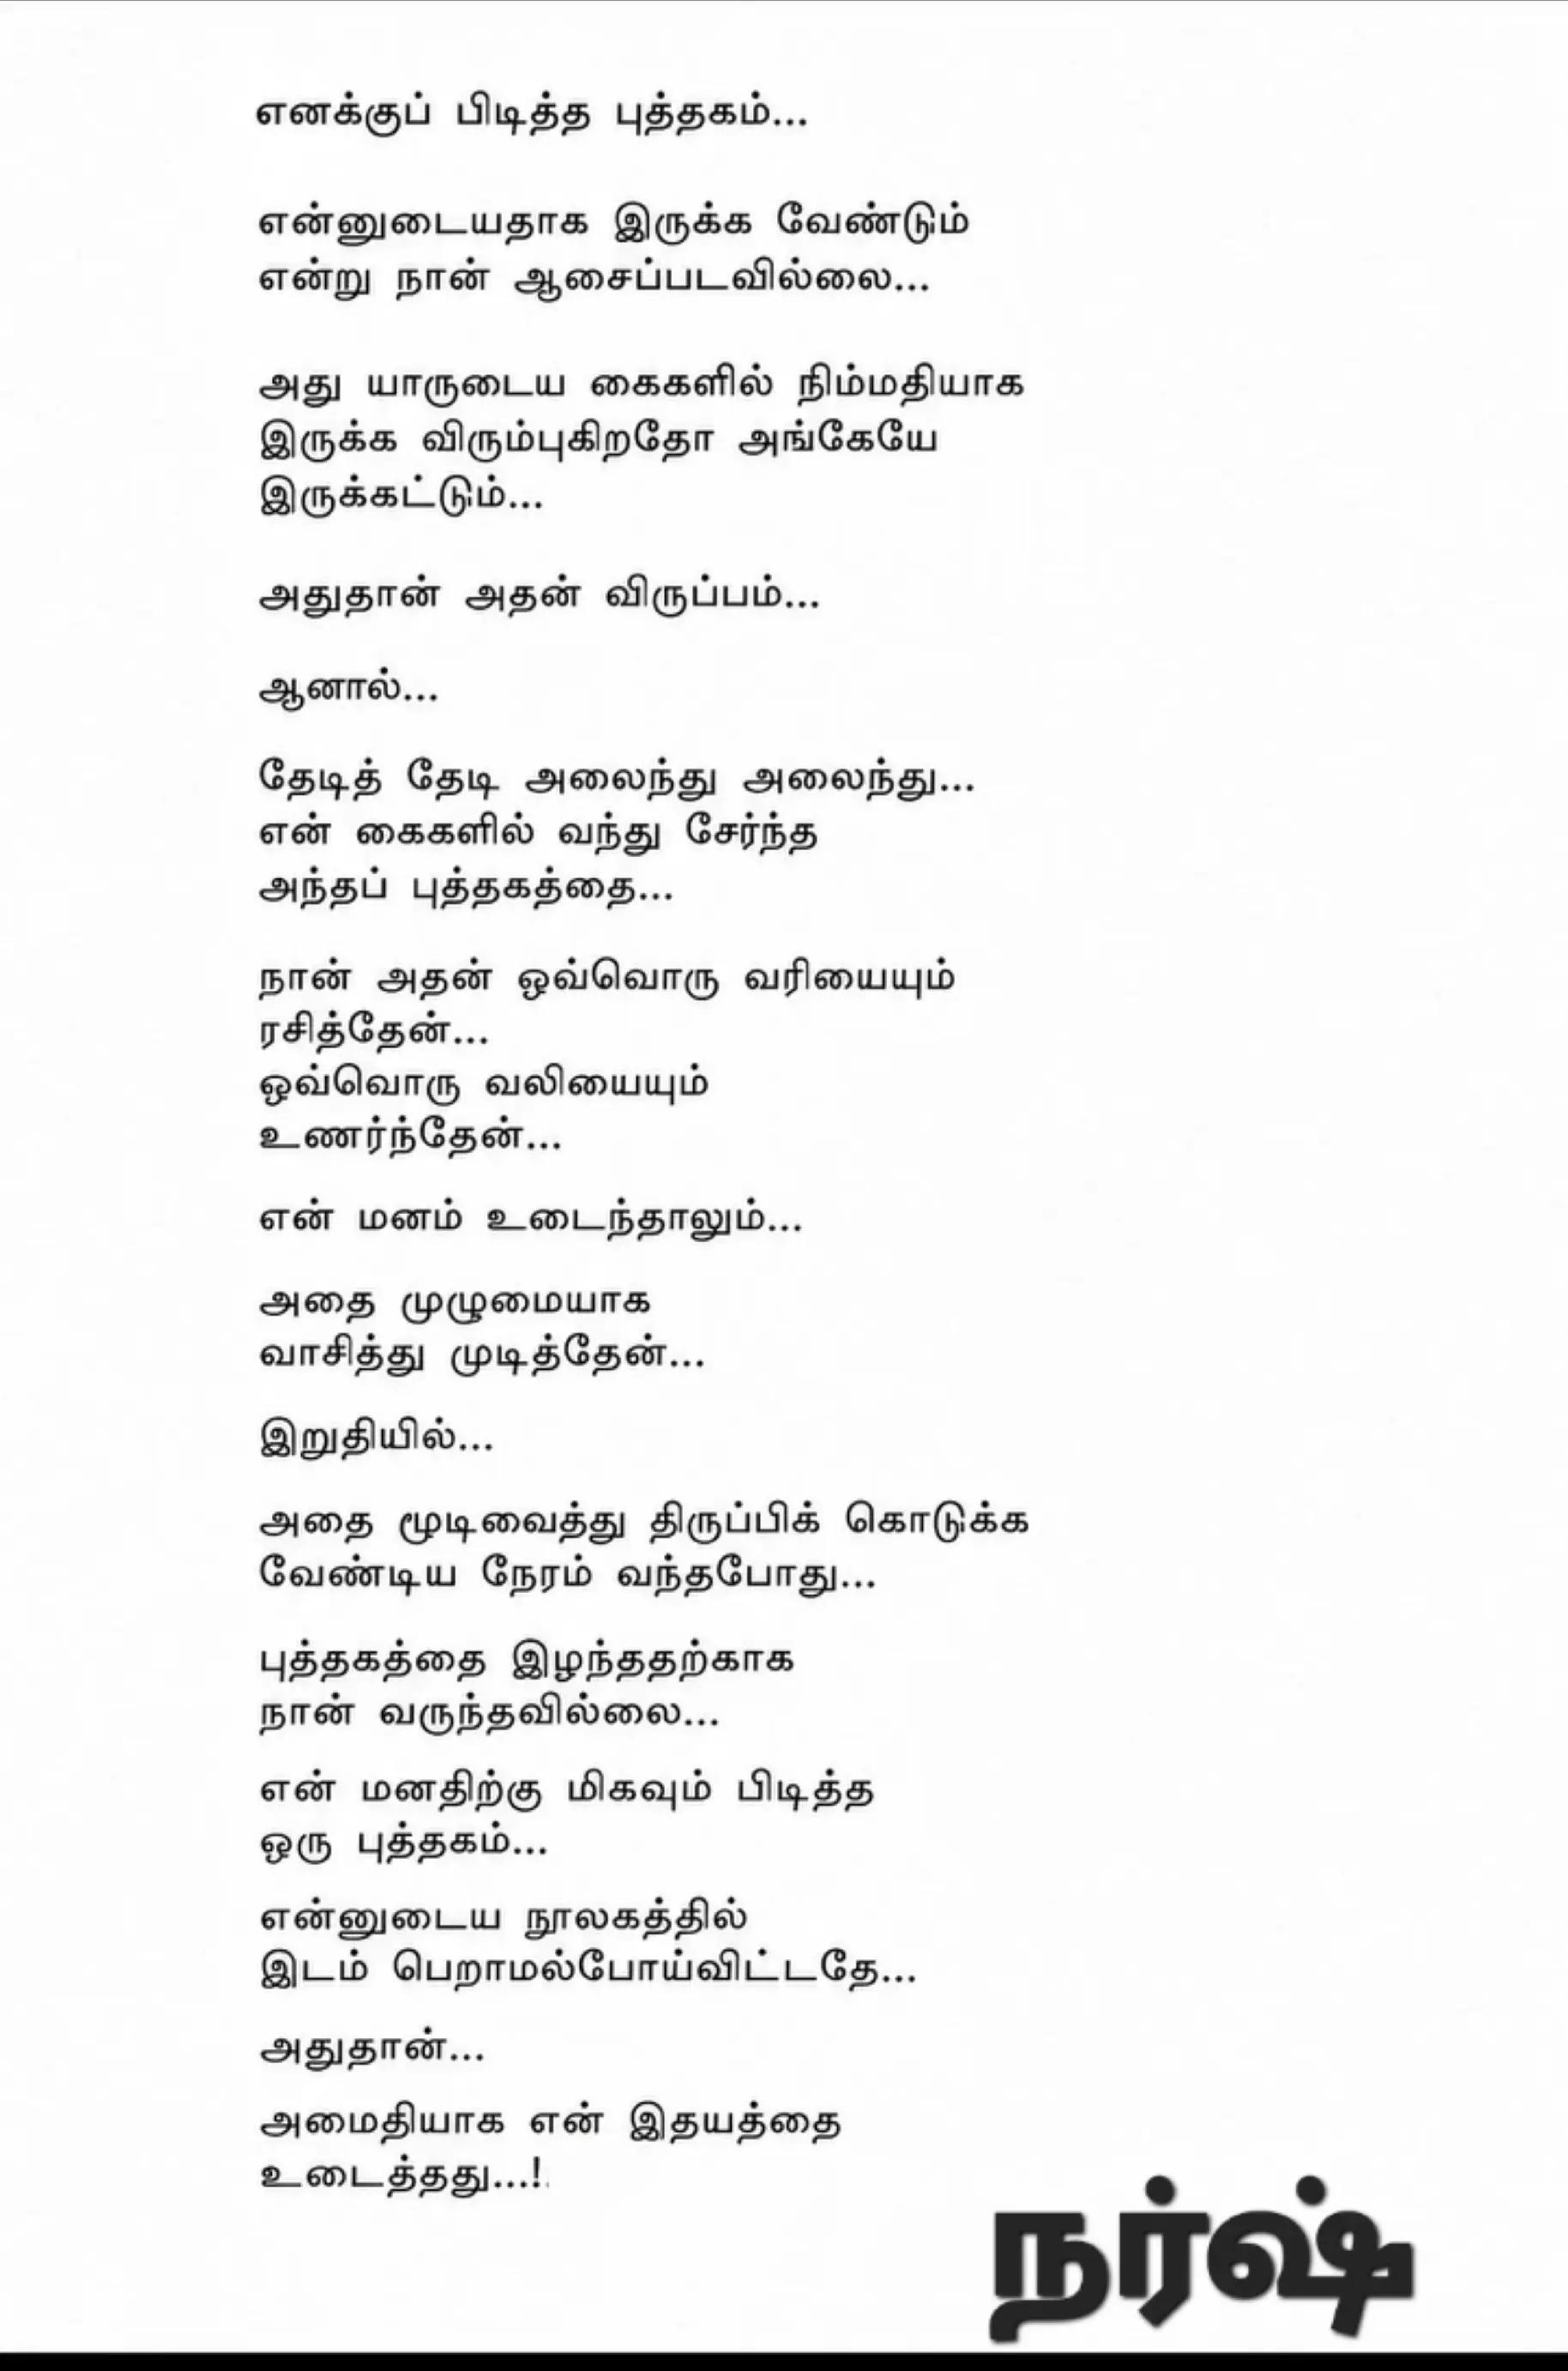 எனக்குப் பிடித்த புத்தகம்...
என்னுடையதாக இருக்க வேண்டும்
என்று நான் ஆசைப்படவில்லை...
அது யாருடைய கைகளில் நிம்மதியாக
இருக்க விரும்புகிறதோ அங்கேயே
இருக்கட்டும்...
அதுதான் அதன் விருப்பம்...
ஆனால்...
தேடித் தேடி அலைந்து அலைந்து...
என் கைகளில் வந்து சேர்ந்த
அந்தப் புத்தகத்தை...
நான் அதன் ஒவ்வொரு வரியையும்
ரசித்தேன்...
ஒவ்வொரு வலியையும்
உணர்ந்தேன்...
என் மனம் உடைந்தாலும்...
அதை முழுமையாக
வாசித்து முடித்தேன்...
இறுதியில்...
அதை மூடிவைத்து திருப்பிக் கொடுக்க
வேண்டிய நேரம் வந்தபோது...
புத்தகத்தை இழந்ததற்காக
நான் வருந்தவில்லை...
என் மனதிற்கு மிகவும் பிடித்த
ஒரு புத்தகம்...
என்னுடைய நூலகத்தில்
இடம் பெறாமல்போய்விட்டதே...
அதுதான்...
அமைதியாக என் இதயத்தை
உடைத்தது...!
நர்ஷ்